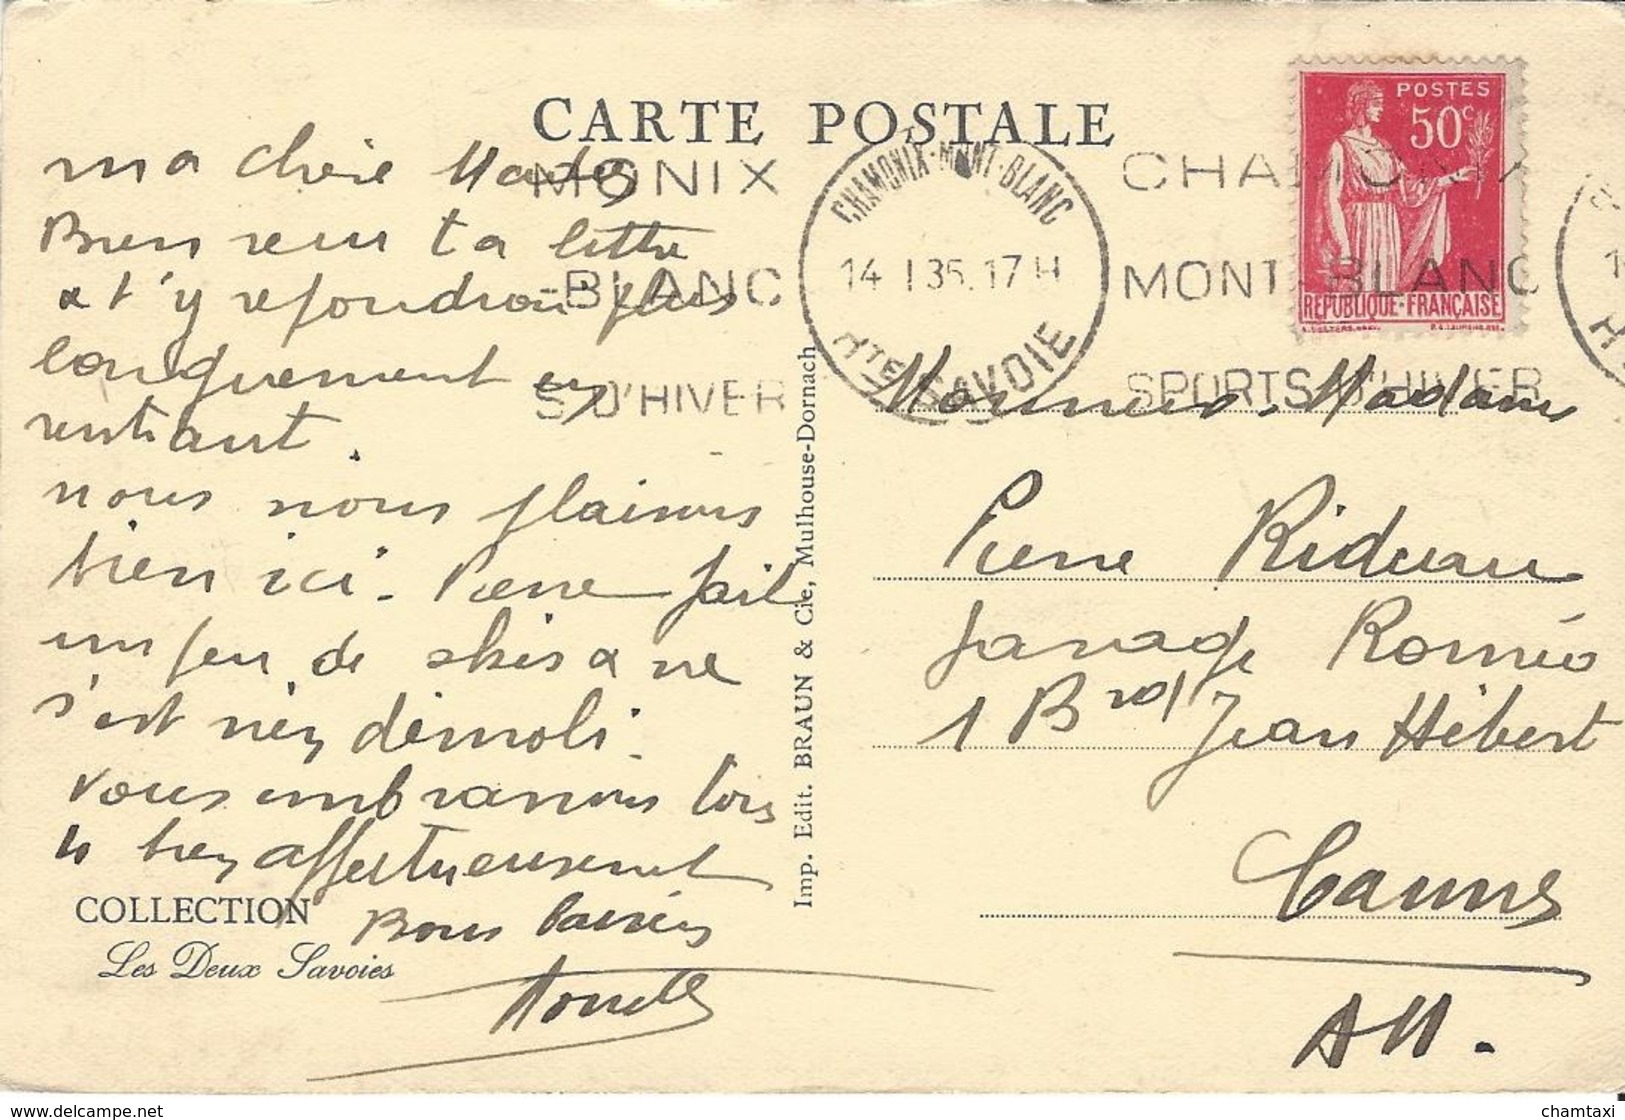 CARTE POSTALE
POSTES
50c
REPUBLIQUE-FRANÇAISE
MONIX
-BLANC
S D'HIVER
CHAMONIX-MONT-BLANC
14 -1 35. 17 H
HTE SAVOIE
CHAMONIX
MONT-BLANC
SPORTS D'HIVER
ma chère
Bien reçu ta lettre
& t'y répondrai plus
longuement en
rentrant.
nous nous plaisons
bien ici. Pierre fait
un peu de skis & ne
s'est rien démoli.
Vous embrassons tous
bien affectueusement
Bons baisers
Imp. Edit. BRAUN & Cie, Mulhouse-Dornach
COLLECTION
Les Deux Savoies
Monsieur. Madame
Pierre Rideau
garage Roméo
1 Brd Jean Hibert
Cannes
AM.
www.delcampe.net
chamtaxi